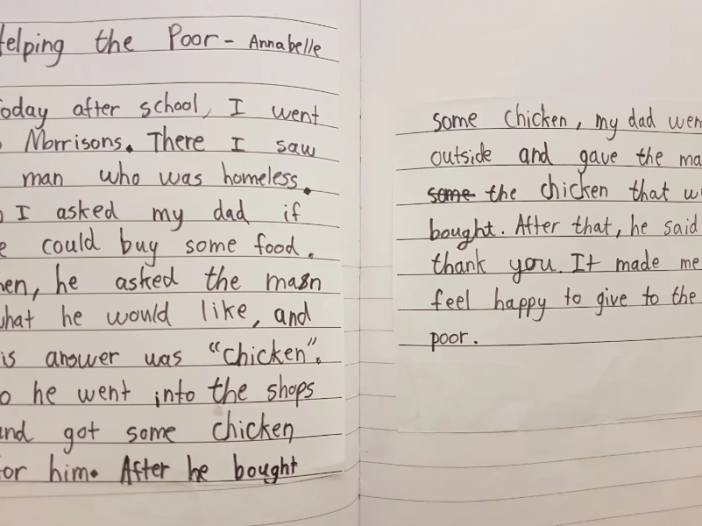 elping the Poor - Annabelle
oday after school, I went
Morrisons. There I saw
man who was homeless.
I asked my dad if
e could buy some food.
hen, he asked the man
what he would like, and
is answer was "chicken".
o he went into the shops
and got some chicken
for him. After he bought
some chicken, my dad wen
outside and gave the ma
some the chicken that w
bought. After that, he said
thank you. It made me
feel happy to give to the
poor.